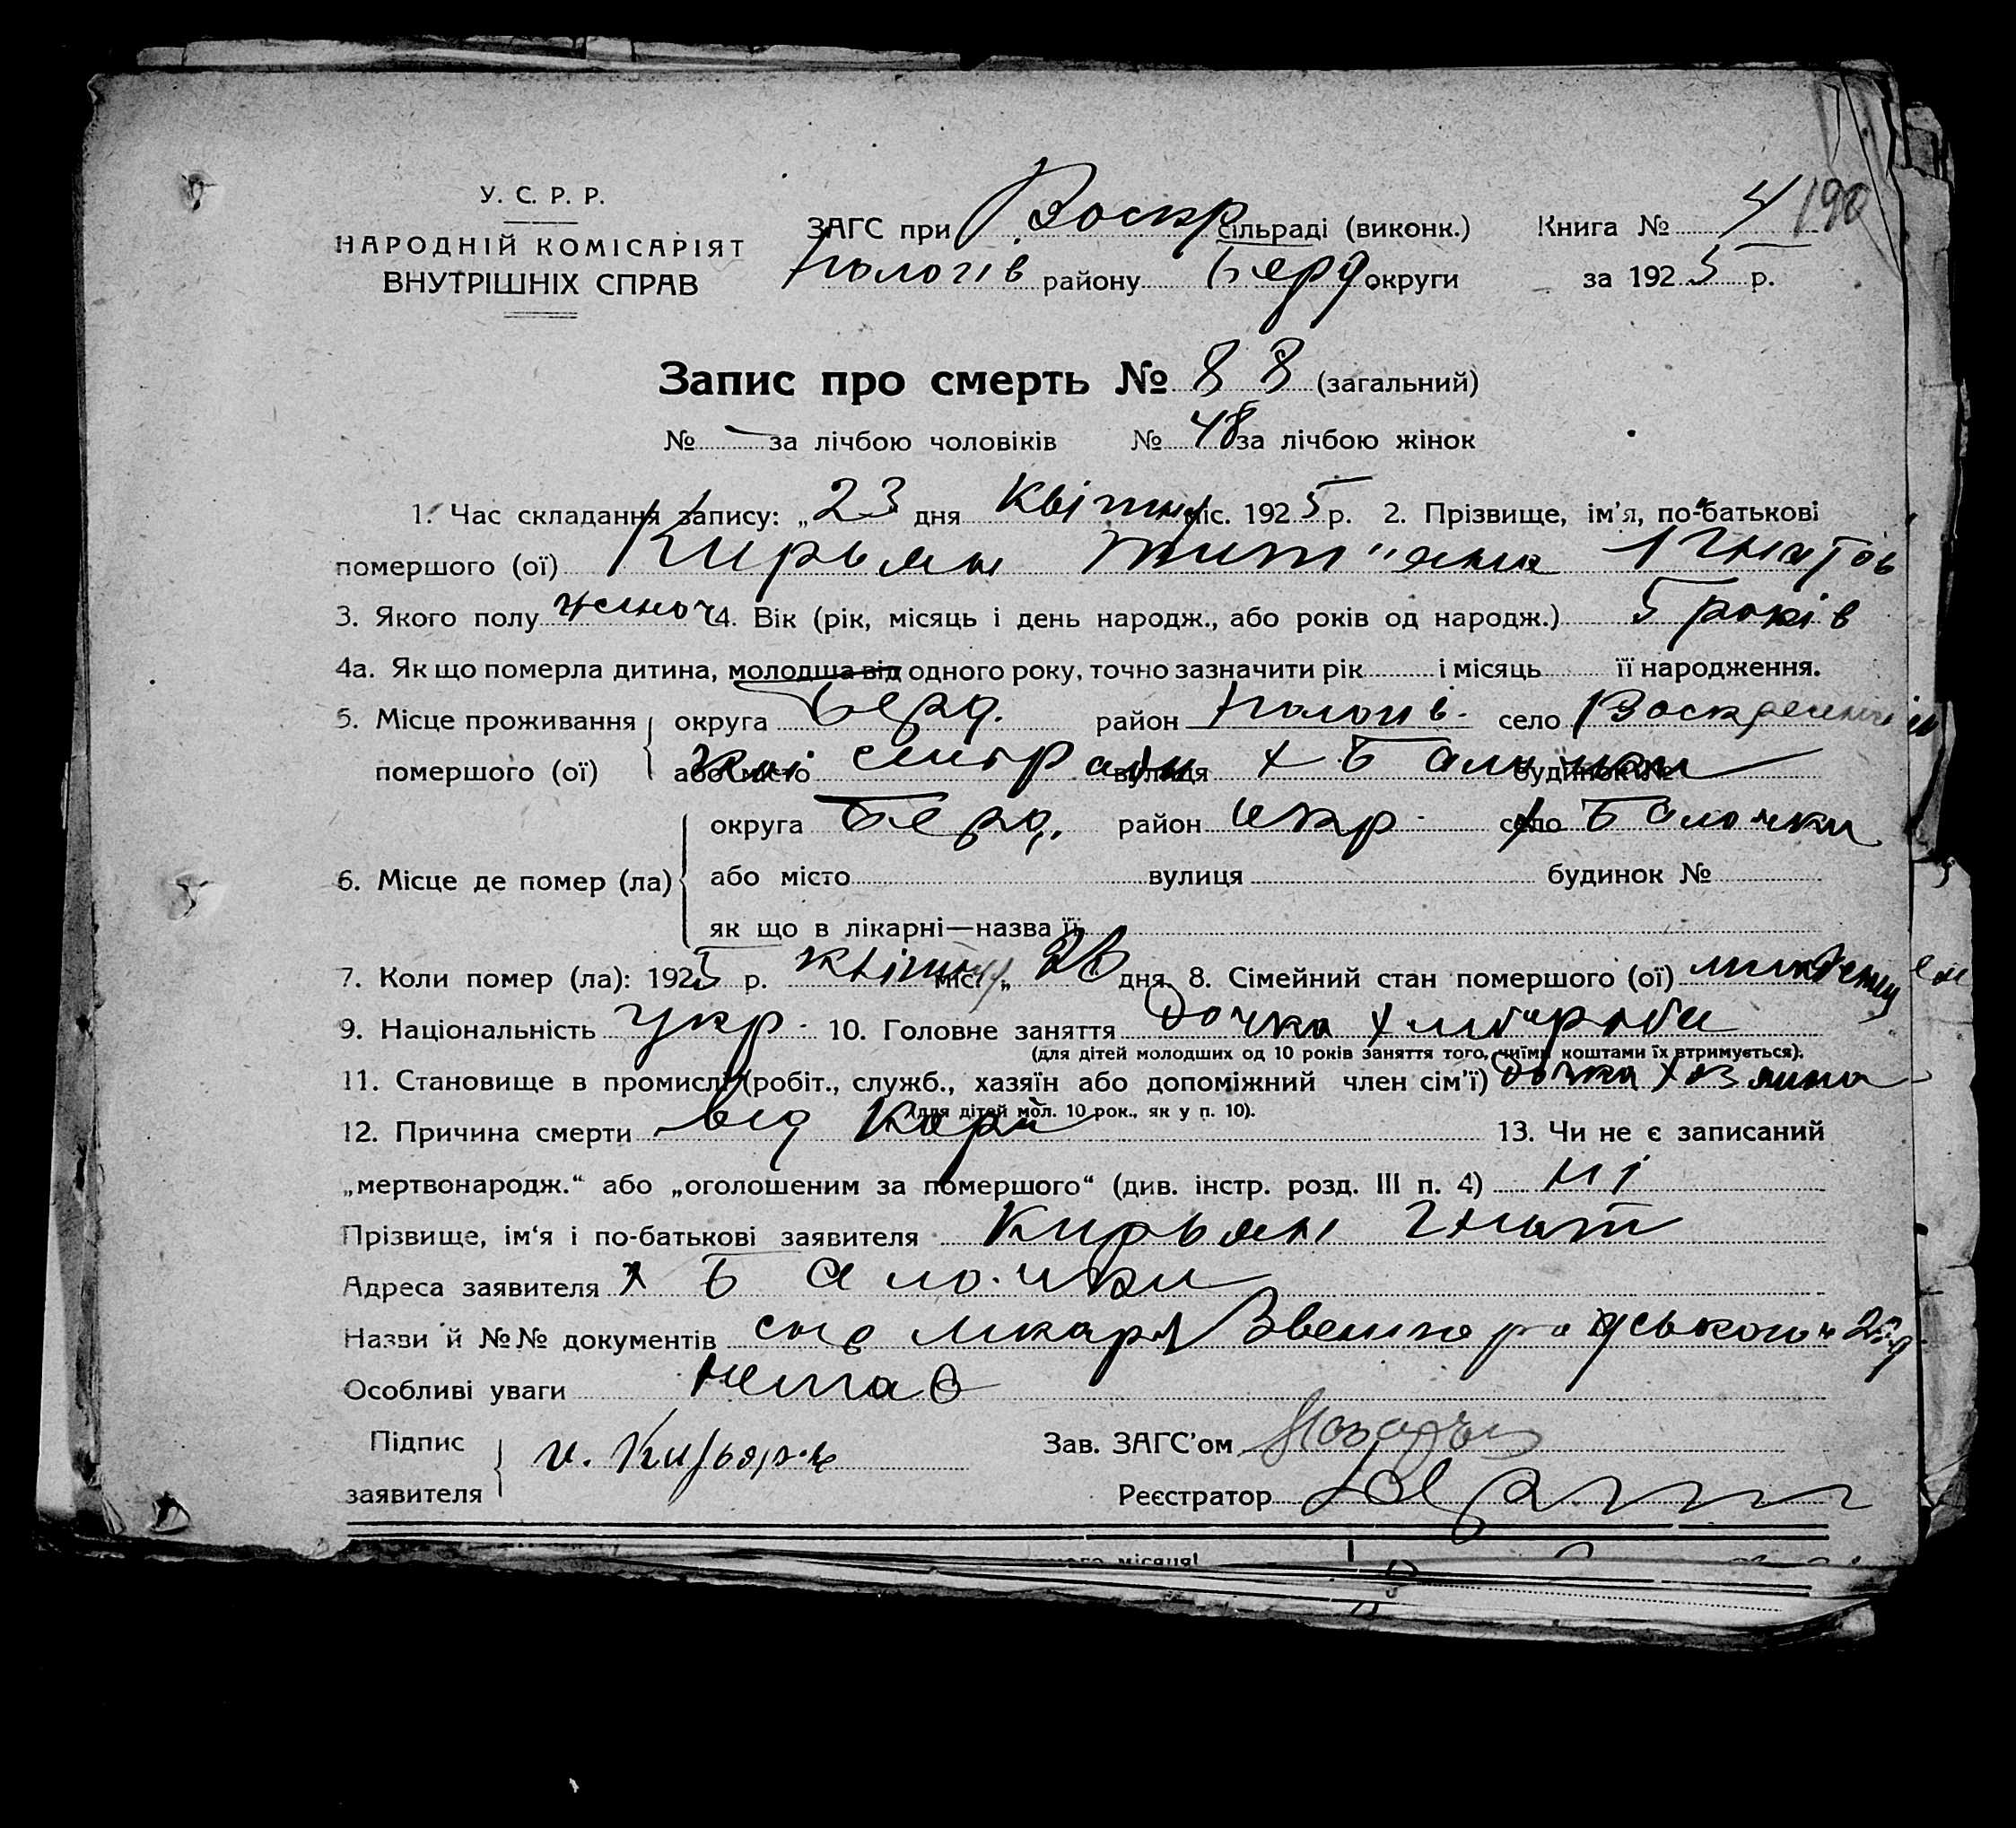 У. С. Р. Р.
НАРОДНІЙ КОМІСАРІЯТ
ВНУТРІШНІХ СПРАВ
ЗАГС при Воскр сільраді (виконк.) Книга № 4 190
Пологів району Берд округи за 1925 р.
Запис про смерть № 88 (загальний)
№ — за лічбою чоловіків № 48 за лічбою жінок
1. Час складання запису: „23 дня квітня міс. 1925 р. 2. Прізвище, ім'я, по-батькові
помершого (ої) Кирьян Тит"яна Ігнатов
3. Якого полу жіноч 4. Вік (рік, місяць і день народж., або років од народж.) 5 років
4а. Як що померла дитина, молодша від одного року, точно зазначити рік і місяць її народження.
5. Місце проживання округа Берд. район Пологів. село Воскресенсь
помершого (ої) або місто вулиця х Балочки будинок №
округа Берд. район село х Балочки
6. Місце де помер (ла) або місто вулиця будинок №
як що в лікарні—назва її
7. Коли помер (ла): 1925 р. квітня міс. „ дня. 8. Сімейний стан помершого (ої)
9. Національність Укр. 10. Головне заняття Дочка хлібороба
(для дітей молодших од 10 років заняття того, чиїми коштами їх втримується).
11. Становище в промислі (робіт., служб., хазяїн або допоміжний член сім'ї) дочка хозяина
(для дітей мол. 10 рок., як у п. 10).
12. Причина смерти від Кори 13. Чи не є записаний
„мертвонародж.“ або „оголошеним за помершого“ (див. інстр. розд. III п. 4) ні
Прізвище, ім'я і по-батькові заявителя Кирьян Гнат
Адреса заявителя х Балочки
Назви й №№ документів лікаря Звенигородського
Особливі уваги немає
Підпис заявителя и. Кирьян
Зав. ЗАГС'ом
Реєстратор